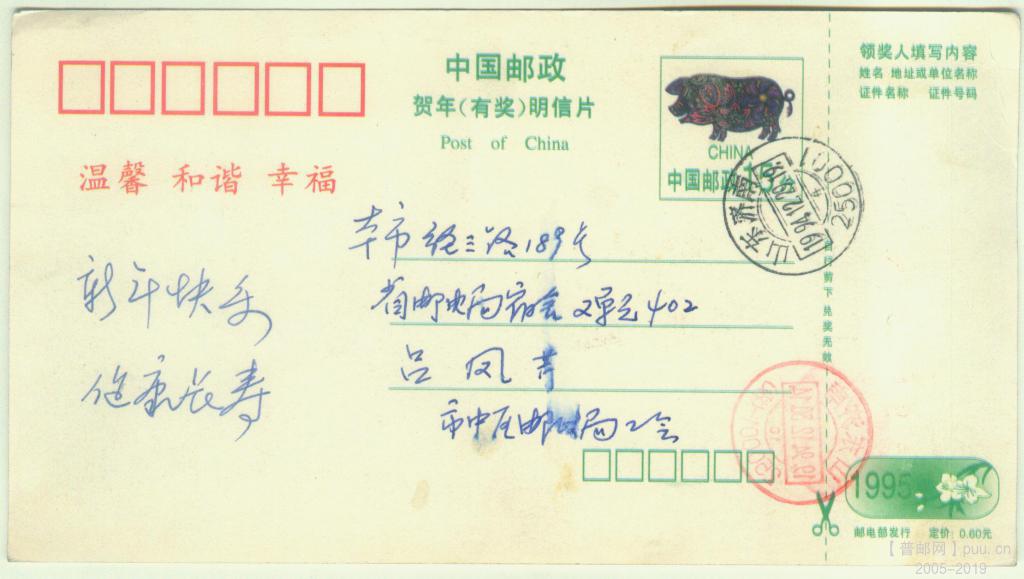 中国邮政
贺年(有奖)明信片
Post of China
CHINA
中国邮政
温馨 和谐 幸福
领奖人填写内容
姓名 地址或单位名称
证件名称 证件号码
山东济南
1994.12.29.19
250001
本市经三路189号
省邮电局宿舍2单元402
吕凤芳
市中区邮电局工会
新年快乐
健康长寿
自行剪下 兑奖无效
1995
邮电部发行 定价 0.60元
【普邮网】puu.cn
2005-2019